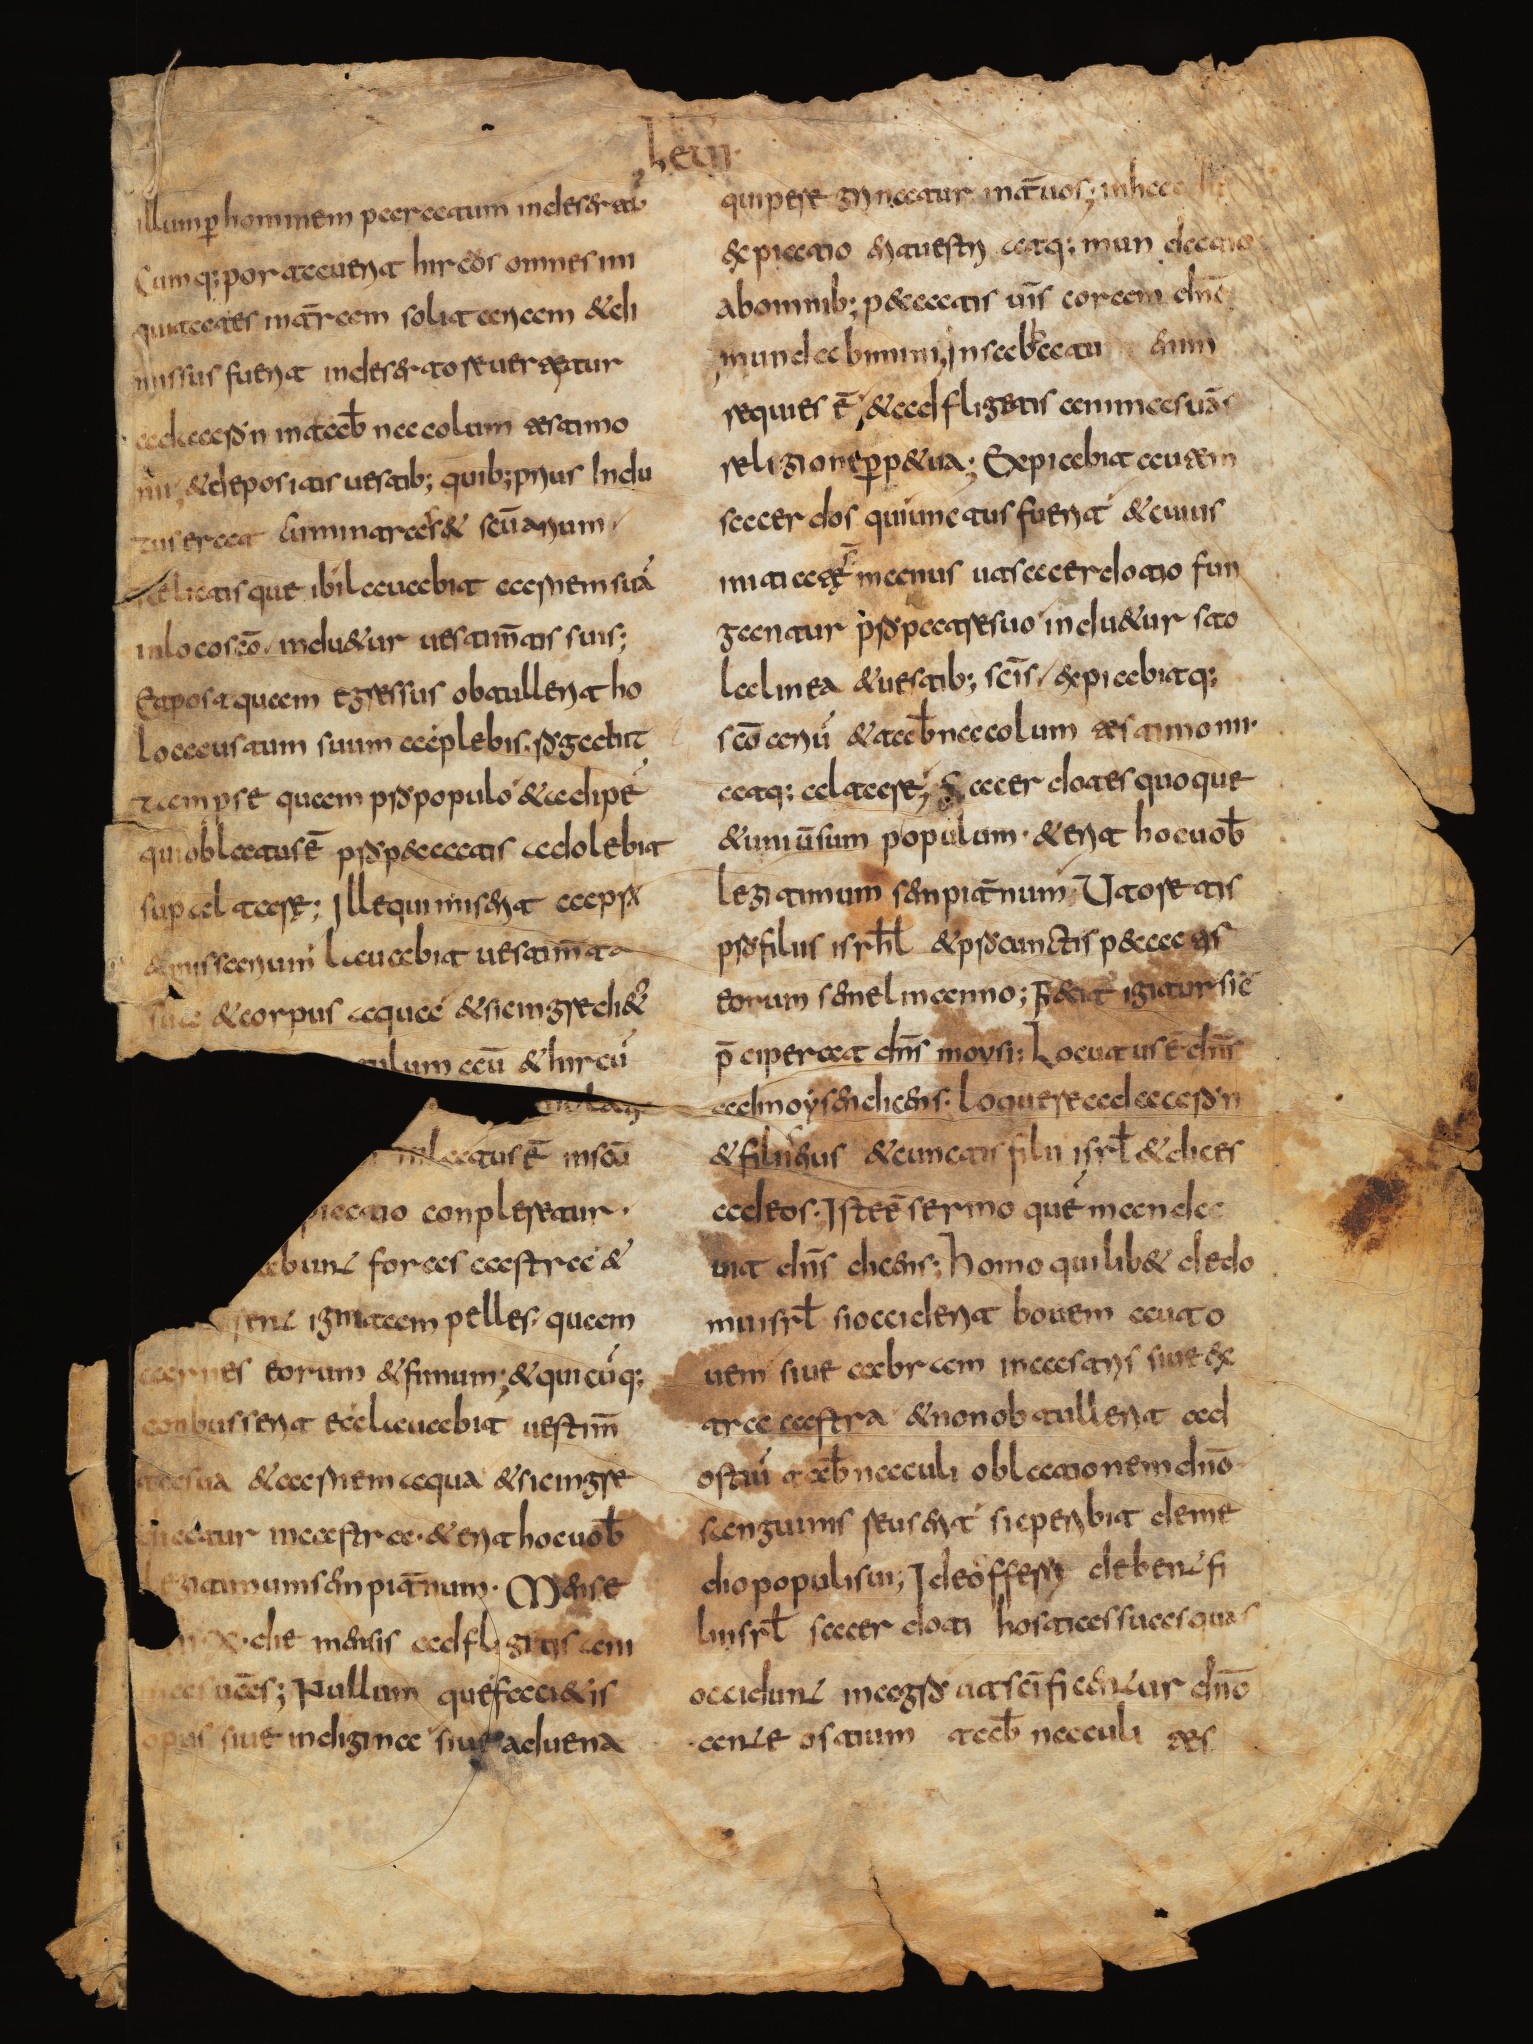 levit
illum p̄ hominem paratum in desertū
Cumq; portaverit hircos omnes ini
quitates in t̄ram solitariam & di
missus fuerit in deserto revertetur
aaron in tab̄nacolum testimo
nii; & depositis vestib; quib; prius indu
tus erat cum intrar& sc̄uarium
relictisque ibi lavabit carnem suā
in loco sc̄o indu&ur vestim̄tis suis;
Et postquam egressus obtullerit ho
locaustum suum ac plebis rogabit
tam p se quam pro populo & adipē
qui oblatus ē pro peccatis adolebit
sup altare; Ille qui miserit capr̄
emissarium lavabit vestim̄ta
sua & corpus aqua & sic ingredi&
ulum aū & hircū
inlatus ē in sc̄ū
piatio conpleretur
abunt foras castra &
rent igni tam pelles quam
carnes eorum & fimum; & quicūq;
conbusserit ea lavabit vestim̄
ta sua & carnem aqua & sic ingre
dietur in castra & erit hoc vob̄
legitimum sempit̄num Mense
x die mensis adfligitis ani
mas vr̄as; Nullum que facietis
opus sive indigina sive advena
qui peregrinatur int̄ vos; in hac die
expiatio erit vestri atq; mundatio
ab omnib; peccatis vr̄is coram dn̄o
mundabimini; in sabbatu enim
requies ē & adfligetis animas vr̄as
religione perp&ua; Expiabit autem
sacerdos qui unctus fuerit & cuius
initiate s̄ manus ut sacerdotio fun
gantur pro patre suo indu&ur sto
la linea & vestib; scīs expiabitq;
sc̄ōarium & tab̄nacolum testimonii
atq; altare; Sacerdotes quoque
& univ̄sum populum & erit hoc vob̄
legitimum sempit̄num Ut oretis
pro filiis isrhl & pro cunctis peccatis
eorum semel in anno; Fecit igitur sic̄
p̄ciperat dn̄s moysi; Locutus ē dn̄s
ad moysen dicens loquere ad aaron
& filiis eius & cunctis filii isrl̄ & dices
ad eos Iste ē sermo quē manda
vit dn̄s dicens; homo quilib& de do
mu isrl̄ si occiderit bovem aut o
vem sive capram in castris sive ex
tra castra & non obtullerit ad
ostiū tab̄naculi oblationem dn̄o
sanguinis reus erit sic peribit de me
dio populi sui; Ideo offerre debent fi
lii isrl̄ sacerdoti hostias suas quas
occidunt in agro ut sc̄ificentur dn̄o
ante ostium tab̄naculi tes